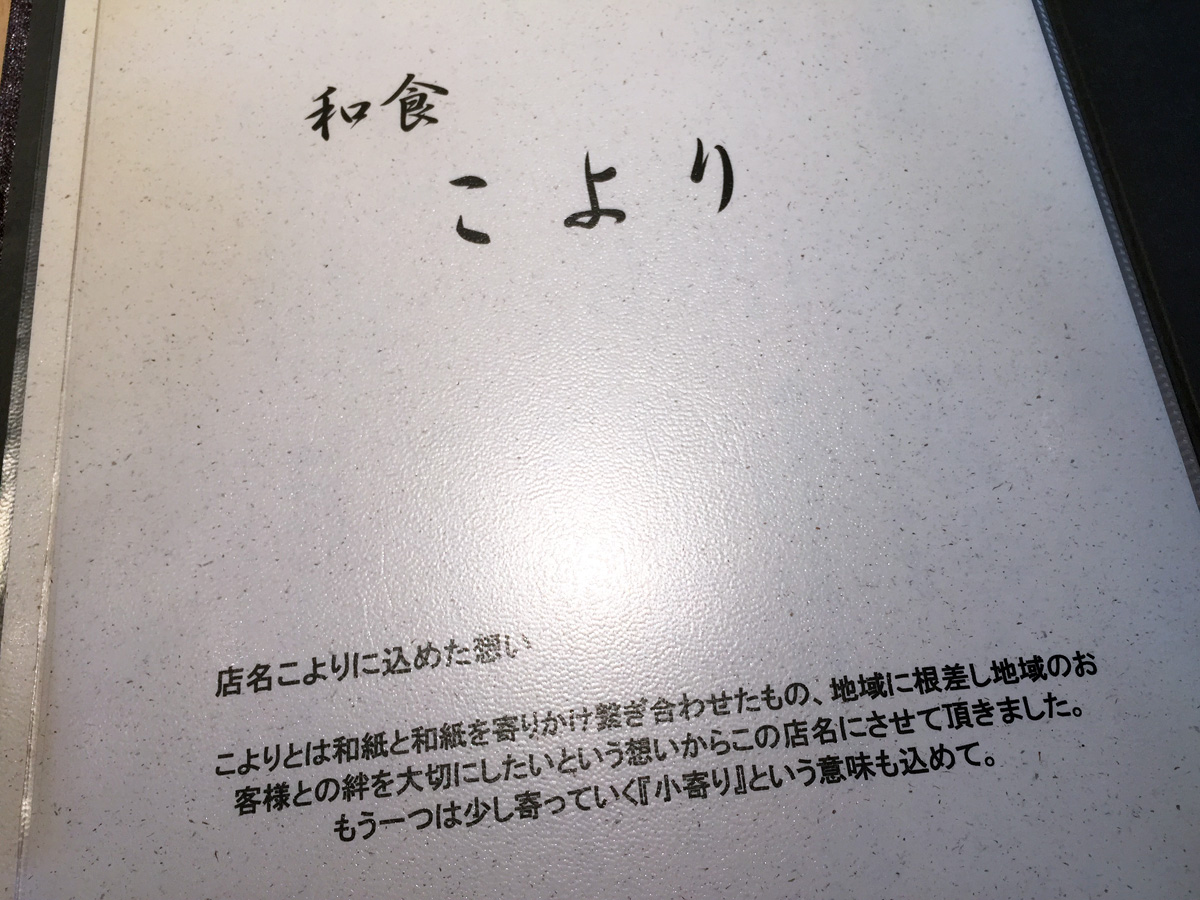 和食
こより
店名こよりに込めた想い
こよりとは和紙と和紙を寄りかけ繋ぎ合わせたもの、地域に根差し地域のお
客様との絆を大切にしたいという想いからこの店名にさせて頂きました。
もう一つは少し寄っていく『小寄り』という意味も込めて。